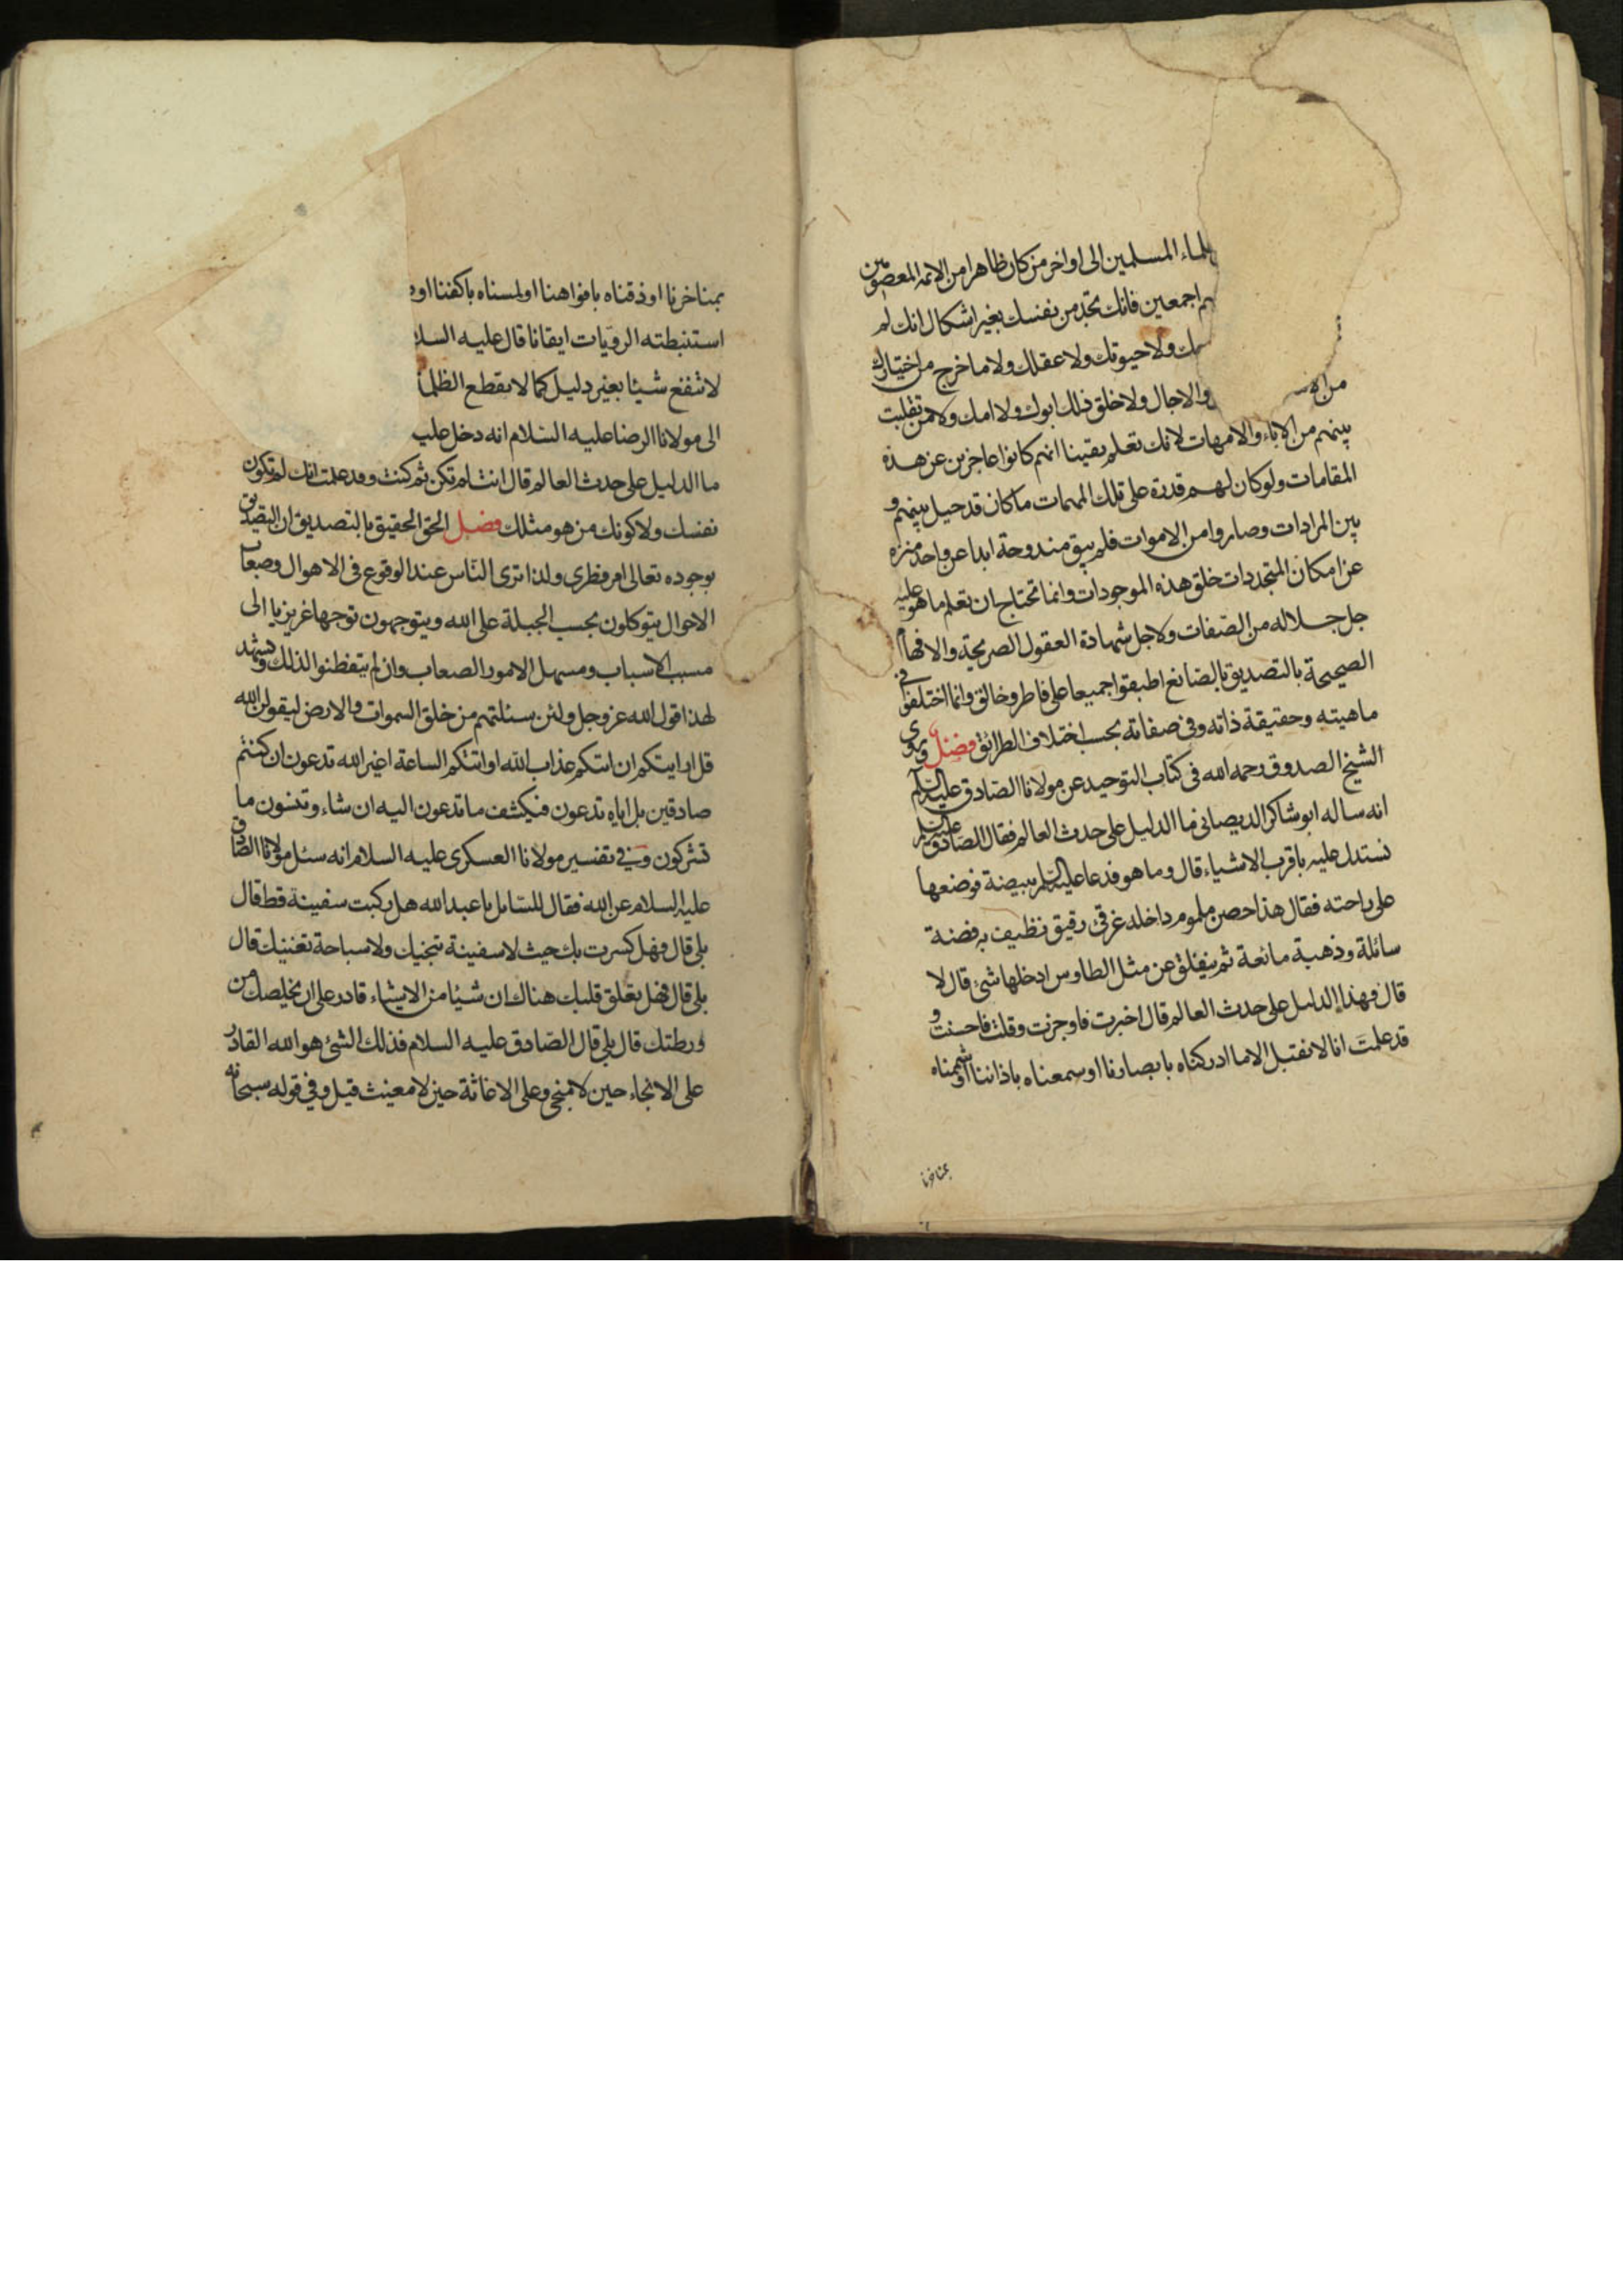 علماء المسلمين الى اواخر من كان ظاهرا من الائمة المعصومين
اجمعين فانك تجد من نفسك بغير اشكال انك لم
ولا حيوتك ولا عقلك ولا ما خرج من اختيارك
من الا والاجال ولا خلق ذلك ابوك ولا امك ولا من تقلبت
بينهم من الاباء والامهات لانك تعلم يقينا انهم كانوا عاجزين عن هذه
المقامات ولو كان لهم قدرة على تلك المهمات ما كان قد حيل بينهم و
بين المرادات وصاروا من الاموات فلم يبق مندوحة ابدا عن واحد منزه
عن امكان المتجددات خلق هذه الموجودات وانما تحتاج ان تعلم ما هو عليه
جل جلاله من الصفات ولاجل شهادة العقول الصريحة والافهام
الصحيحة بالتصديق بالصانع اطبقوا جميعا على فاطر وخالق وانما اختلفوا في
ماهيته وحقيقة ذاته وفي صفاته بحسب اختلاف الطرائق فصل وروى
الشيخ الصدوق رحمه الله في كتاب التوحيد عن مولانا الصادق عليه السلام
انه ساله ابو شاكر الديصاني ما الدليل على حدث العالم فقال الصادق عليه السلام
نستدل عليه باقرب الاشياء قال وما هو فدعا عليه السلام ببيضة فوضعها
على راحته فقال هذا حصن ملموم داخله غرقئ رقيق نظيف به فضة
سائلة وذهبة مائعة ثم ينفلق عن مثل الطاوس ادخلها شئ قال لا
قال فهذا الدليل على حدث العالم قال اخبرت فاوجزت وقلت فاحسنت و
قد علمت انا لا نقبل الا ما ادركناه بابصارنا او سمعناه باذاننا او شممناه
بمناخرنا
بمناخرنا او ذقناه بافواهنا او لمسناه باكفنا او
استنبطته الرويات ايقانا قال عليه السلا
لا تنفع شيئا بغير دليل كما لا يقطع الظلم
الى مولانا الرضا عليه السلام انه دخل عليه
ما الدليل على حدث العالم قال انت لم تكن ثم كنت وقد علمت انك لم تكون
نفسك ولا كونك من هو مثلك فصل الحق الحقيق بالتصديق ان التصديق
بوجوده تعالى امر فطري ولذا ترى الناس عند الوقوع في الاهوال وصعاب
الاحوال يتوكلون بحسب الجبلة على الله ويتوجهون توجها غريزيا الى
مسبب الاسباب ومسهل الامور الصعاب وان لم يتفطنوا لذلك ويشهد
لهذا قول الله عز وجل ولئن سئلتهم من خلق السموات والارض ليقولن الله
قل ارايتكم ان اتيكم عذاب الله او اتتكم الساعة اغير الله تدعون ان كنتم
صادقين بل اياه تدعون فيكشف ما تدعون اليه ان شاء وتنسون ما
تشركون وفي تفسير مولانا العسكري عليه السلام انه سئل مولانا الصادق
عليه السلام عن الله فقال للسايل يا عبد الله هل ركبت سفينة قط قال
بلى قال فهل كسرت بك حيث لا سفينة تنجيك ولا سباحة تغنيك قال
بلى قال فهل تعلق قلبك هناك ان شيئا من الاشياء قادر على ان يخلصك من
ورطتك قال بلى قال الصادق عليه السلام فذلك الشئ هو الله القادر
على الانجاء حين لا منجي وعلى الاغاثة حين لا مغيث قيل وفي قوله سبحانه